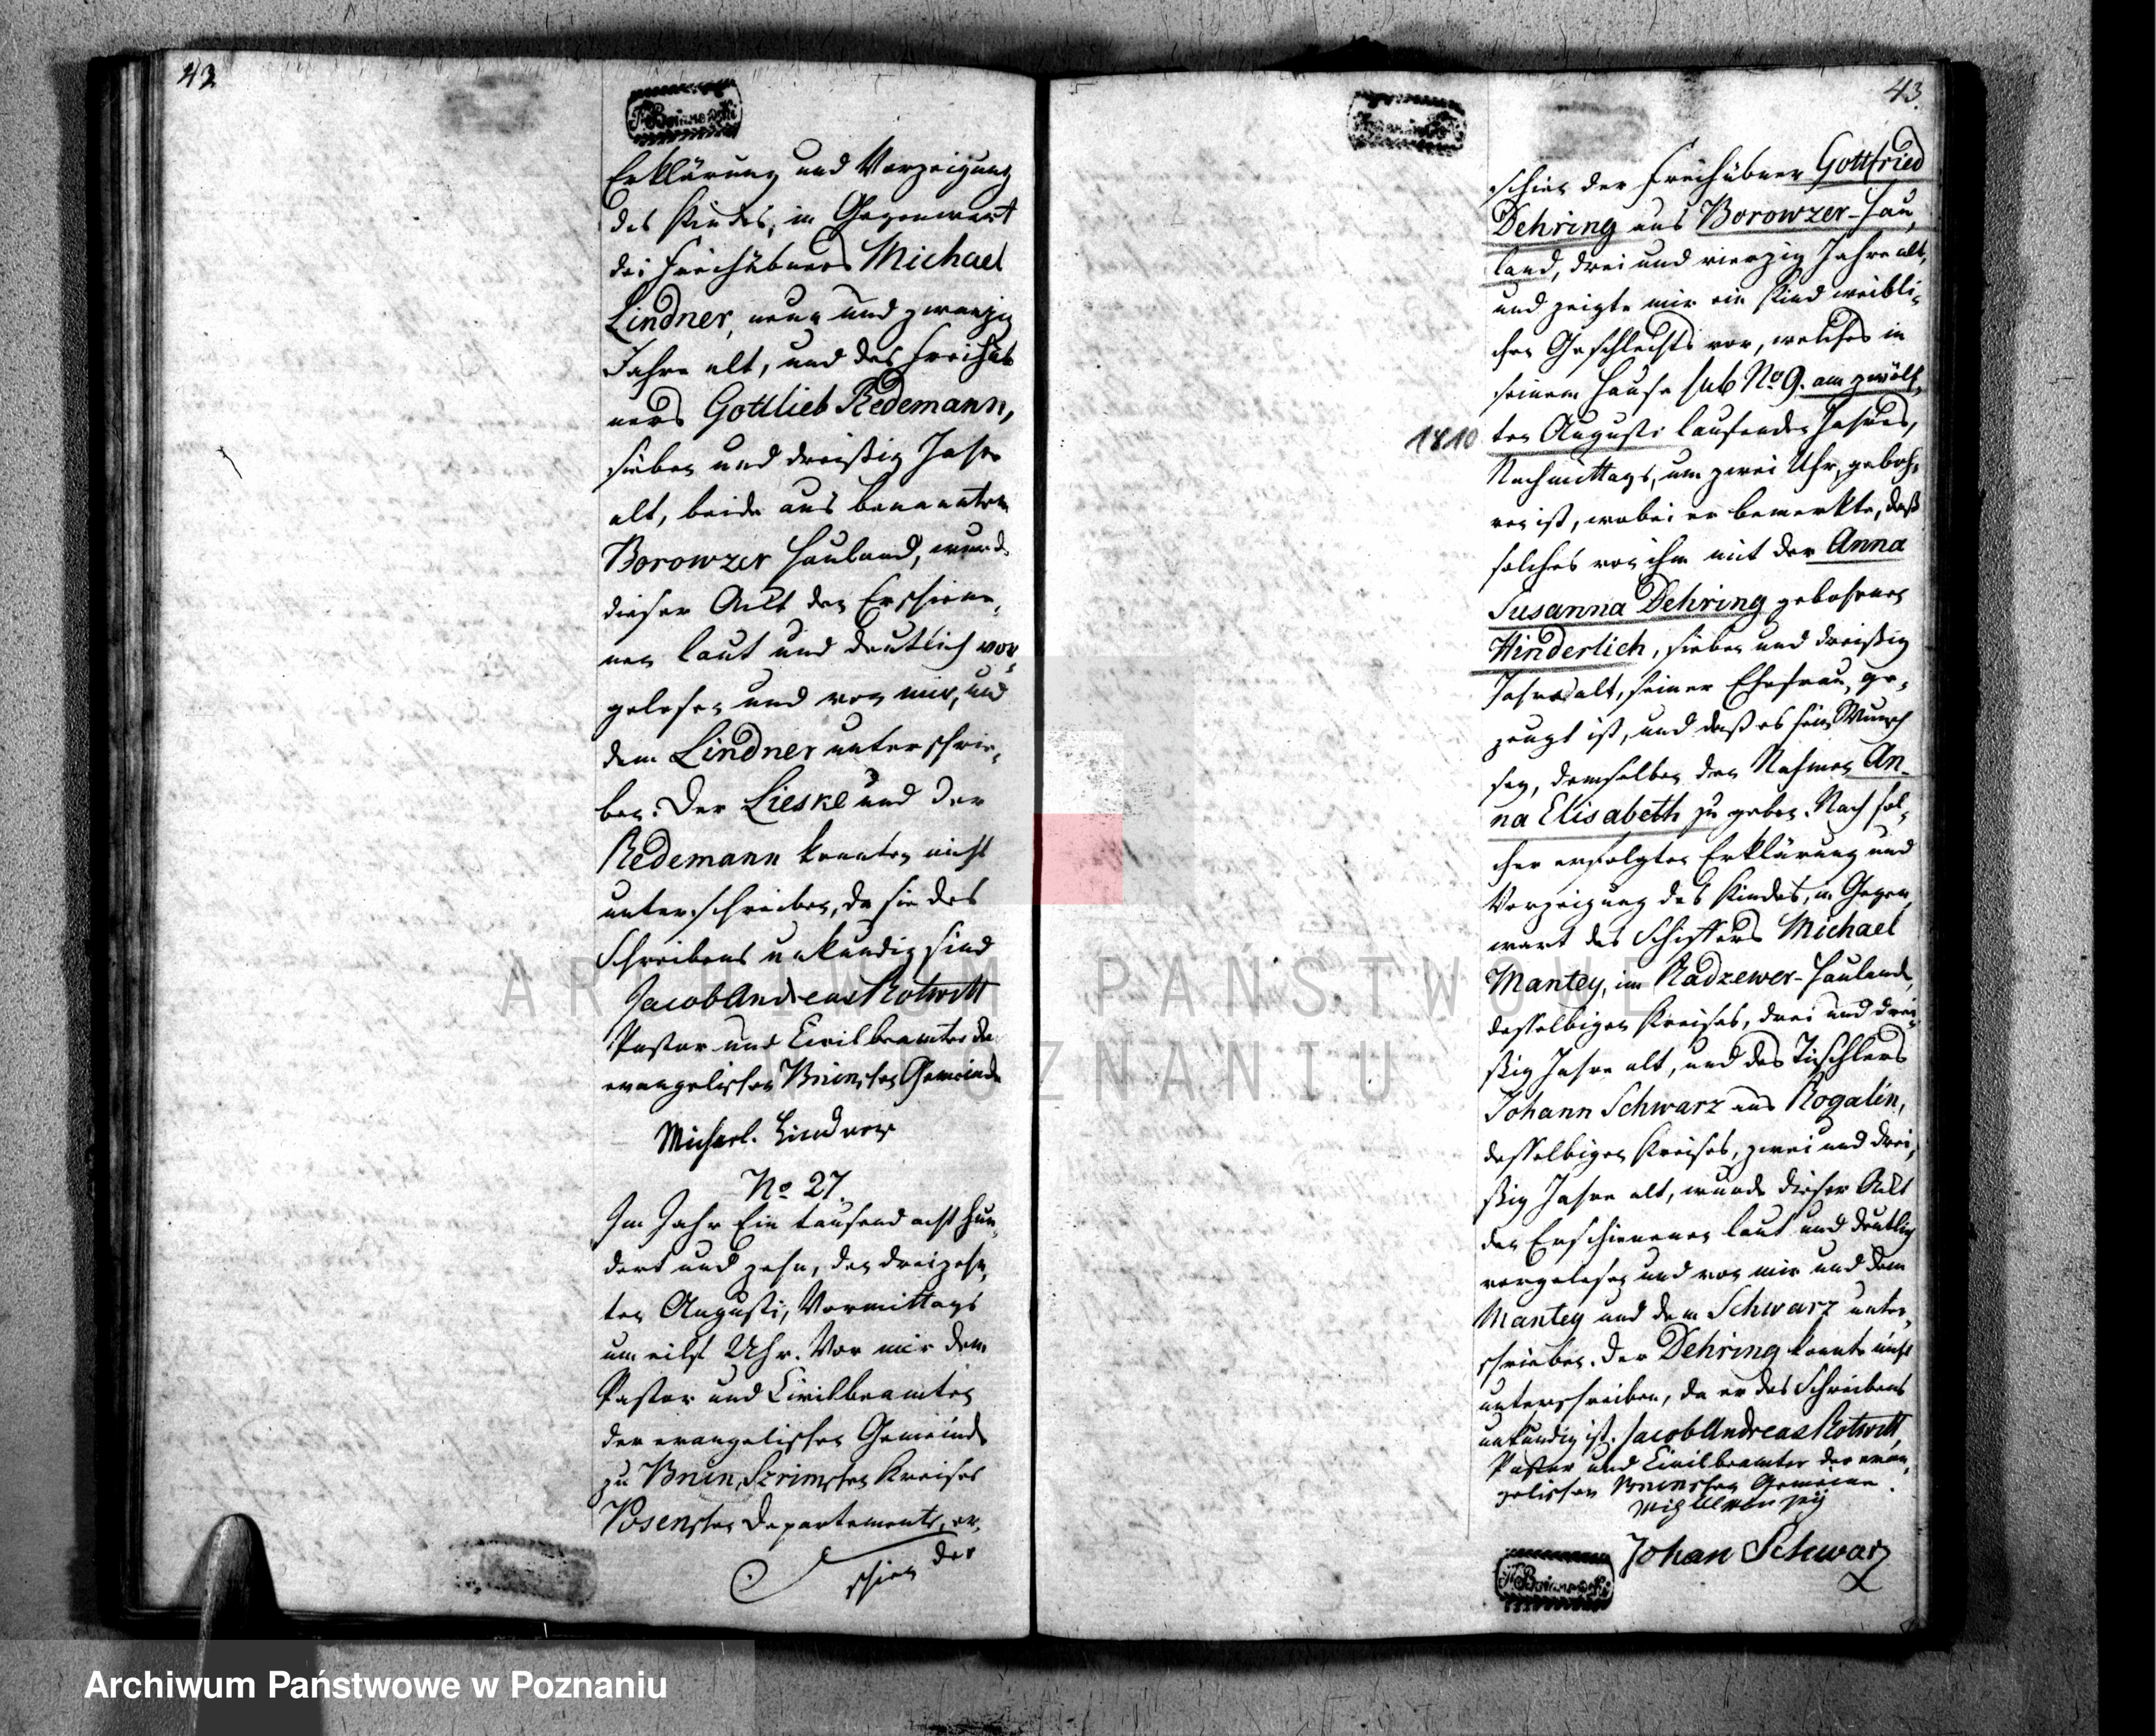 42
F. Boianowski
Erklärung und Vorzeigung
des Kindes, in Gegenwart
des Freihübners Michael
Lindner, neun und zwanzig
Jahre alt, und des Freihüb
ners Gottlieb Redemann,
sieben und dreißig Jahr
alt, beide aus benannten
Borowzer Hauland, wurde
dieser Ackt den Erschiene,
nen laut und deutlich vor,
gelesen und von mir, und
dem Lindner unterschrie,
ben. Der Lieske und der
Redemann konnten nicht
unterschreiben, da sie des
Schreibens unkundig sind
Jacob Andreas Rotwitt
Pastor und Civilbeamter der
evangelischen Bninschen Gemeinde
Michael. Lindner
No 27.
Im Jahr Ein tausend acht hun,
dert und zehn, den dreizehn,
ten Augusti, Vormittags
um eilf Uhr. Vor mir dem
Pastor und Civilbeamten
der evangelischen Gemeinde
zu Bnin, Szrimschen Kreises
Posenschen Departements, er,
schien der
43.
schien der Freihübner Gottfried
Dehring aus Borowzer-Hau,
land, drei und vierzig Jahre alt,
und zeigte mir ein Kind weibli,
chen Geschlechts vor, welches in
seinem Hause sub No 9. am zwölf,
1810 ten Augusti laufenden Jahres,
Nachmittags, um zwei Uhr, geboh,
ren ist, wobei er bemerkte, daß
solches von ihm mit der Anna
Susanna Dehring gebohrnen
Hinderlich, sieben und dreißig
Jahre alt, seiner Ehefrau, ge,
zeugt ist, und daß es sein Wunsch
sey, demselben den Nahmen An-
na Elisabeth zu geben. Nach sol,
cher erfolgten Erklärung und
Vorzeigung des Kindes, in Gegen,
wart des Schiffers Michael
Mantey, im Radzewer-Hauland,
desselbigen Kreises, drei und drei,
ßig Jahre alt, und des Tischlers
Johann Schwarz aus Rogalin,
desselbigen Kreises, zwei und drei,
ßig Jahre alt, wurde dieser Ackt
den Erschienenen laut und deutlich
vorgelesen und von mir und dem
Mantey und dem Schwarz unter,
schrieben. Der Dehring konnte nicht
unterschreiben, da er des Schreibens
unkundig ist. Jacob Andreas Rotwitt,
Pastor und Civilbeamter der evan,
gelischen Bninschen Gemeine.
Johan Schwarz
F. Boianowski
ARCHIWUM PAŃSTWOWE
W POZNANIU
Archiwum Państwowe w Poznaniu